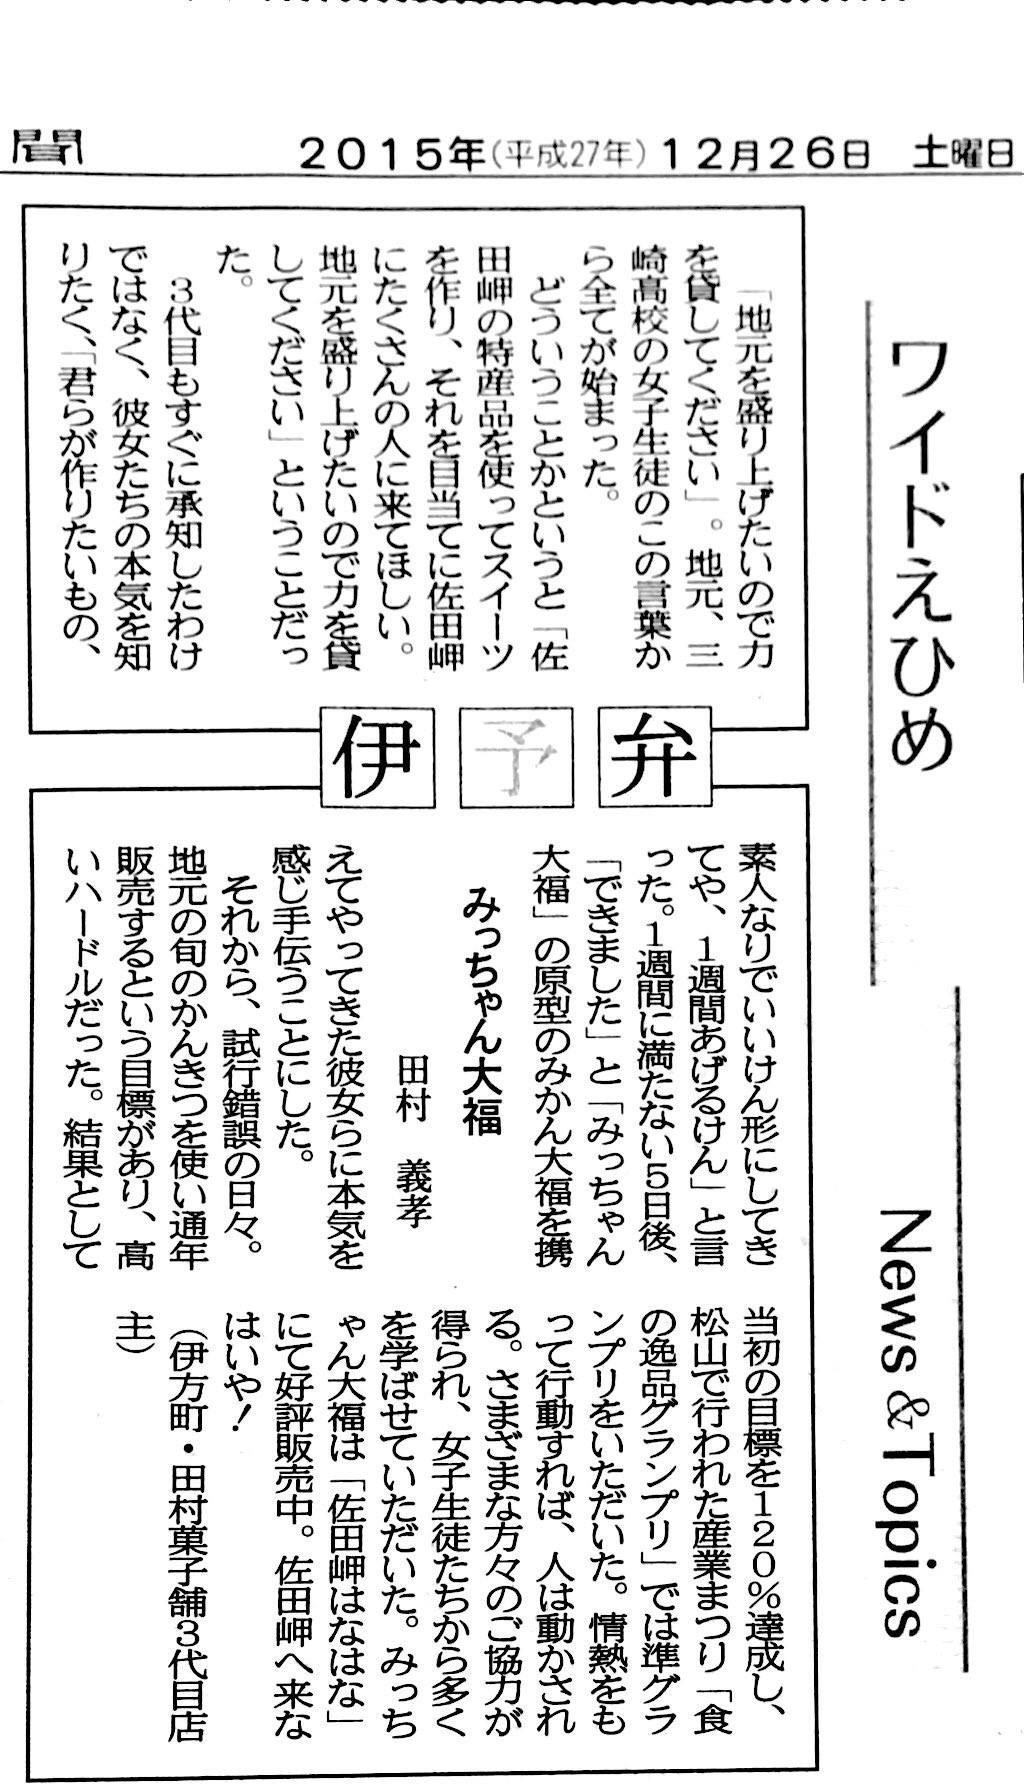 聞
2015年(平成27年)12月26日 土曜日
ワイドえひめ
News&Topics
伊予弁
みっちゃん大福
田村 義孝
「地元を盛り上げたいので力
を貸してください」。地元、三
崎高校の女子生徒のこの言葉か
ら全てが始まった。
どういうことかというと「佐
田岬の特産品を使ってスイーツ
を作り、それを目当てに佐田岬
にたくさんの人に来てほしい。
地元を盛り上げたいので力を貸
してください」ということだっ
た。
3代目もすぐに承知したわけ
ではなく、彼女たちの本気を知
りたく、「君らが作りたいもの、
素人なりでいいけん形にしてき
てや、1週間あげるけん」と言
った。1週間に満たない5日後、
「できました」と「みっちゃん
大福」の原型のみかん大福を携
えてやってきた彼女らに本気を
感じ手伝うことにした。
それから、試行錯誤の日々。
地元の旬のかんきつを使い通年
販売するという目標があり、高
いハードルだった。結果として
当初の目標を120%達成し、
松山で行われた産業まつり「食
の逸品グランプリ」では準グラ
ンプリをいただいた。情熱をも
って行動すれば、人は動かされ
る。さまざまな方々のご協力が
得られ、女子生徒たちから多く
を学ばせていただいた。みっち
ゃん大福は「佐田岬はなはな」
にて好評販売中。佐田岬へ来な
はいや!
(伊方町・田村菓子舗3代目店
主)